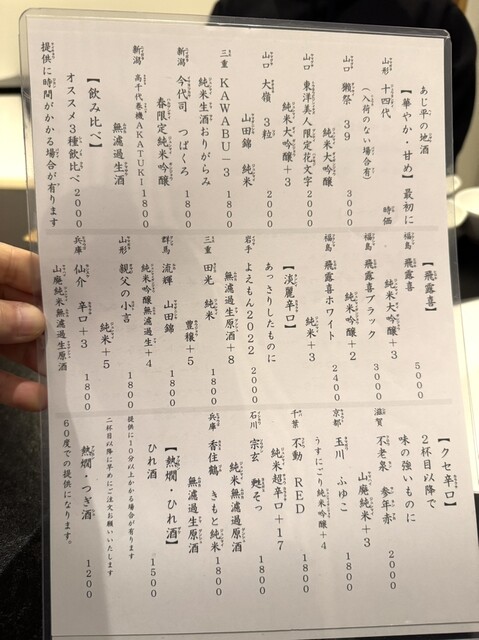 あじ平の地酒
【華やか・甘め】最初に
山形 十四代 時価
(入荷のない場合有)
山口 獺祭 39 純米大吟醸 3000
山口 東洋美人 限定花文字
純米大吟醸+3 2000
山口 大嶺 3粒
山田錦 純米 2000
三重 KAWABU-3 1800
純米生酒おりがらみ
新潟 今代司 つばくろ
春限定純米吟醸 1800
新潟 高千代巻機AKATUKI 1800
無濾過生酒
【飲み比べ】
オススメ3種飲比べ 2000
提供に時間がかかる場合が有ります
【飛露喜】
福島 飛露喜
純米大吟醸+3 5000
福島 飛露喜ブラック
純米吟醸+2 3000
福島 飛露喜ホワイト 2400
純米+3
【淡麗辛口】
あっさりしたものに
岩手 よえもん2022 2000
無濾過生原酒+8
三重 田光 純米 1800
豊穣+5
群馬 流輝 山田錦 1800
純米吟醸無濾過生+4
山形 親父の小言 1800
純米+5
兵庫 仙介 辛口+3 1800
山廃純米無濾過生原酒
【クセ辛口】
2杯目以降で
味の強いものに
滋賀 不老泉 参年赤 2000
山廃純米+3
京都 玉川 ふゆこ 1800
うすにごり純米吟醸+4
千葉 不動 RED
純米超辛口+17 1800
石川 宗玄 甦そっ
純米無濾過原酒 1800
兵庫 香住鶴 きもと純米
無濾過生原酒 1800
【熱燗・ひれ酒】
ひれ酒 1500
提供に10分以上かかる場合が有ります
二杯目以降に早めにご注文お願いいたします
熱燗・つぎ酒 1200
60度での提供になります。